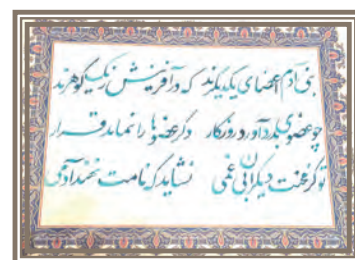 بنی آدم اعضای یکدیگرند که در آفرینش ز یک گوهرند
چو عضوی بدرد آورد روزگار دگر عضوها را نماند قرار
تو کز محنت دیگران بی غمی نشاید که نامت نهند آدمی